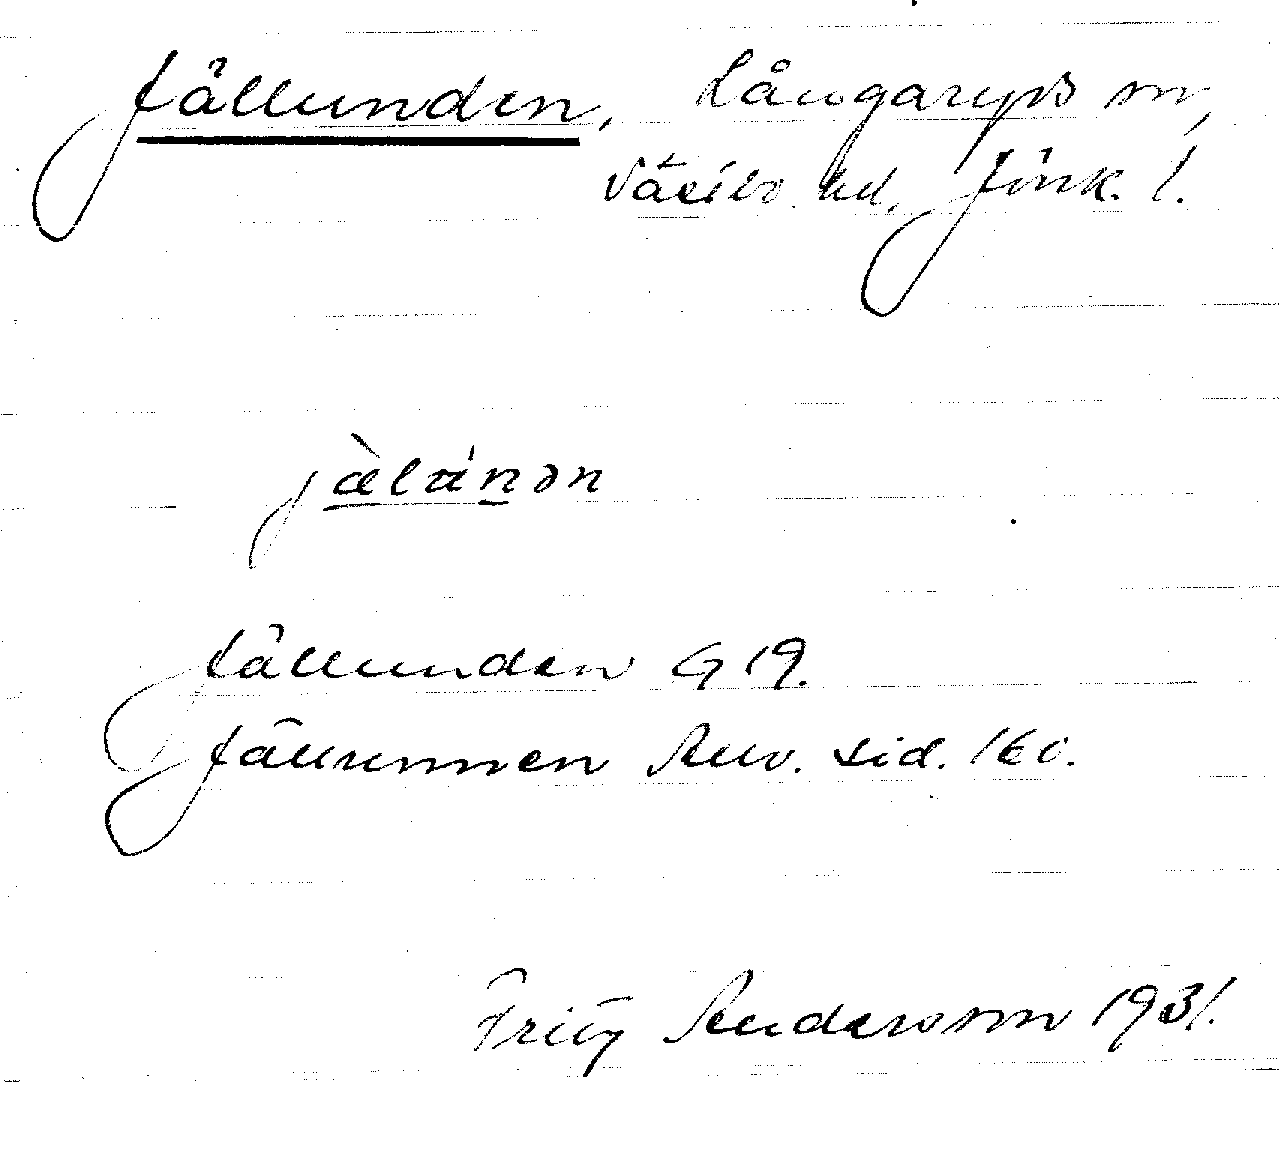 Jällunden, Långaryds sn,
Västbo hd, Jönk. l.
jæ̀lán̠ən
Jällunden G 19.
Jällunnen Allv. sid. 160.
Fritz Andersson 1931.